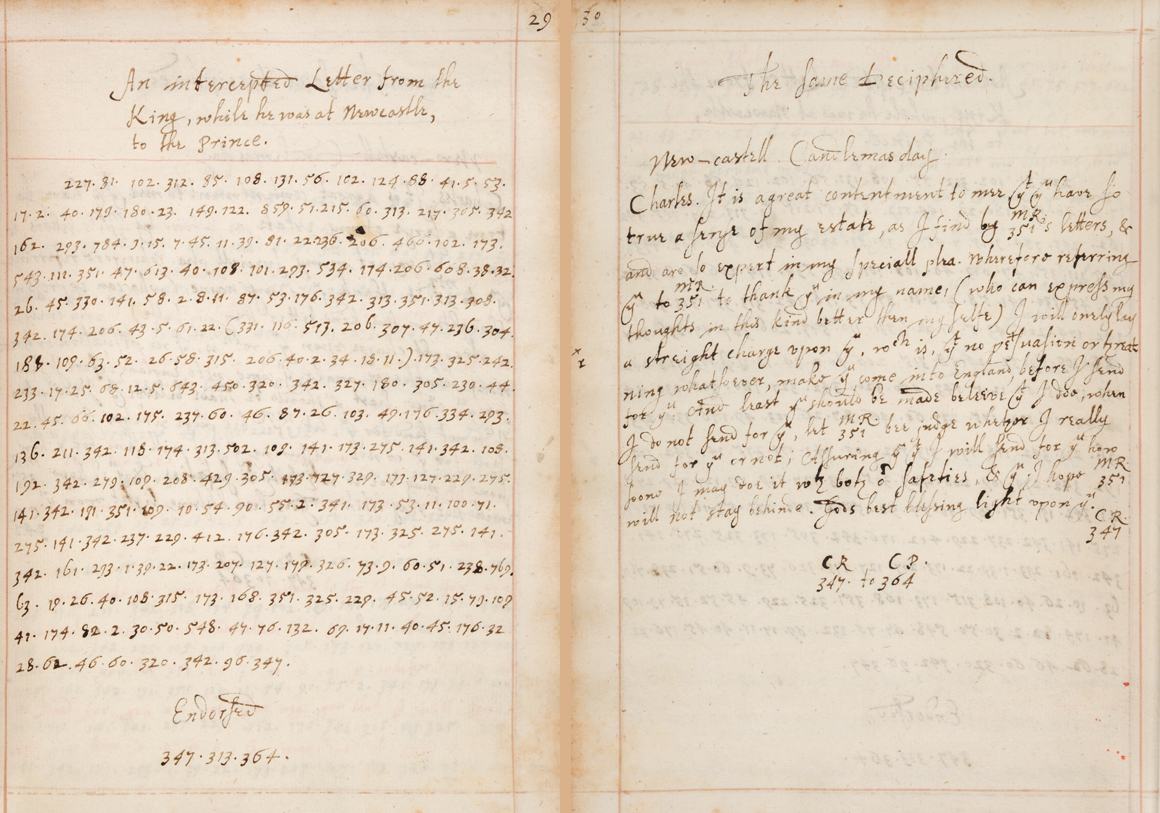 29
An intercepted Letter from the
King, while he was at Newcastle,
to the Prince.
227. 81. 102. 312. 85. 108. 131. 56. 102. 124. 68. 41. 5. 53.
17. 2. 40. 179. 180. 23. 149. 122. 859. 51. 215. 60. 313. 217. 305. 342
162. 293. 784. 9. 15. 7. 45. 11. 39. 81. 22. 236. 206. 460. 102. 173.
543. 111. 351. 47. 613. 40. 108. 101. 293. 534. 174. 206. 608. 38. 32.
26. 45. 330. 141. 58. 2. 8. 11. 87. 53. 176. 342. 313. 351. 313. 308.
342. 174. 206. 43. 5. 61. 22. (331. 116. 513. 206. 307. 47. 236. 304
188. 109. 63. 52. 26. 58. 315. 206. 40. 2. 34. 18. 11.) 173. 325. 242
233. 17. 25. 68. 12. 5. 643. 450. 320. 342. 327. 180. 305. 230. 44.
22. 45. 66. 102. 175. 237. 60. 46. 87. 26. 103. 49. 176. 334. 293.
136. 211. 342. 118. 174. 313. 502. 109. 141. 173. 275. 141. 342. 108.
192. 342. 279. 109. 208. 429. 305. 173. 127. 329. 173. 127. 229. 275.
141. 342. 191. 351. 109. 10. 54. 90. 55. 2. 341. 173. 53. 11. 100. 71.
275. 141. 342. 237. 229. 412. 176. 342. 305. 173. 325. 275. 141.
342. 161. 293. 1. 39. 22. 173. 207. 127. 179. 326. 73. 9. 60. 51. 238. 769.
63. 19. 26. 40. 108. 315. 173. 168. 351. 325. 229. 45. 52. 15. 79. 109
41. 174. 82. 2. 30. 50. 548. 47. 76. 132. 69. 17. 11. 40. 45. 176. 32
28. 62. 46. 60. 320. 342. 96. 347.
Endorsed
347. 313. 364.
30
The same Deciphered.
New-castell. Candlemas day.
Charles. It is a great contentment to mee yt yu have so
true a sense of my estate, as I find by MR 351's letters, &
and are so expert in my speciall plea. Wherefore referring
yu to MR 351 to thank yu in my name, (who can express my
thoughts in this kind better then my selfe) I will onely lay
a streight charge upon yu, wch is, yt no persuasion or threat
ning whatsoever, make yu come into England before I send
for yu. And least yu should be made beleeve yt I doo, when
I do not send for yu, let MR 351 bee judge whether I really
send for yu or not; Assuring yu yt I will send for yu how
soone I may doe it wth both or safeties, & yn I hope MR 351
will not stay behind. Gods best blessing light upon yu.
CR
347
CR CP
347. to 364